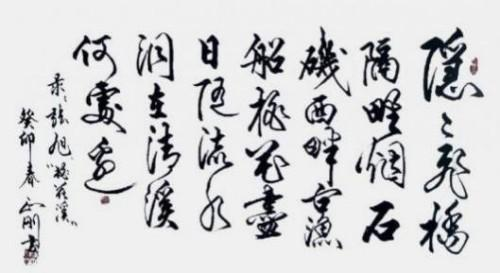 隱々飛橋
隔野烟石
磯西畔问漁
船桃花盡
日随流水
洞在清溪
何處邊
張旭“桃花溪”
癸卯春 刚书